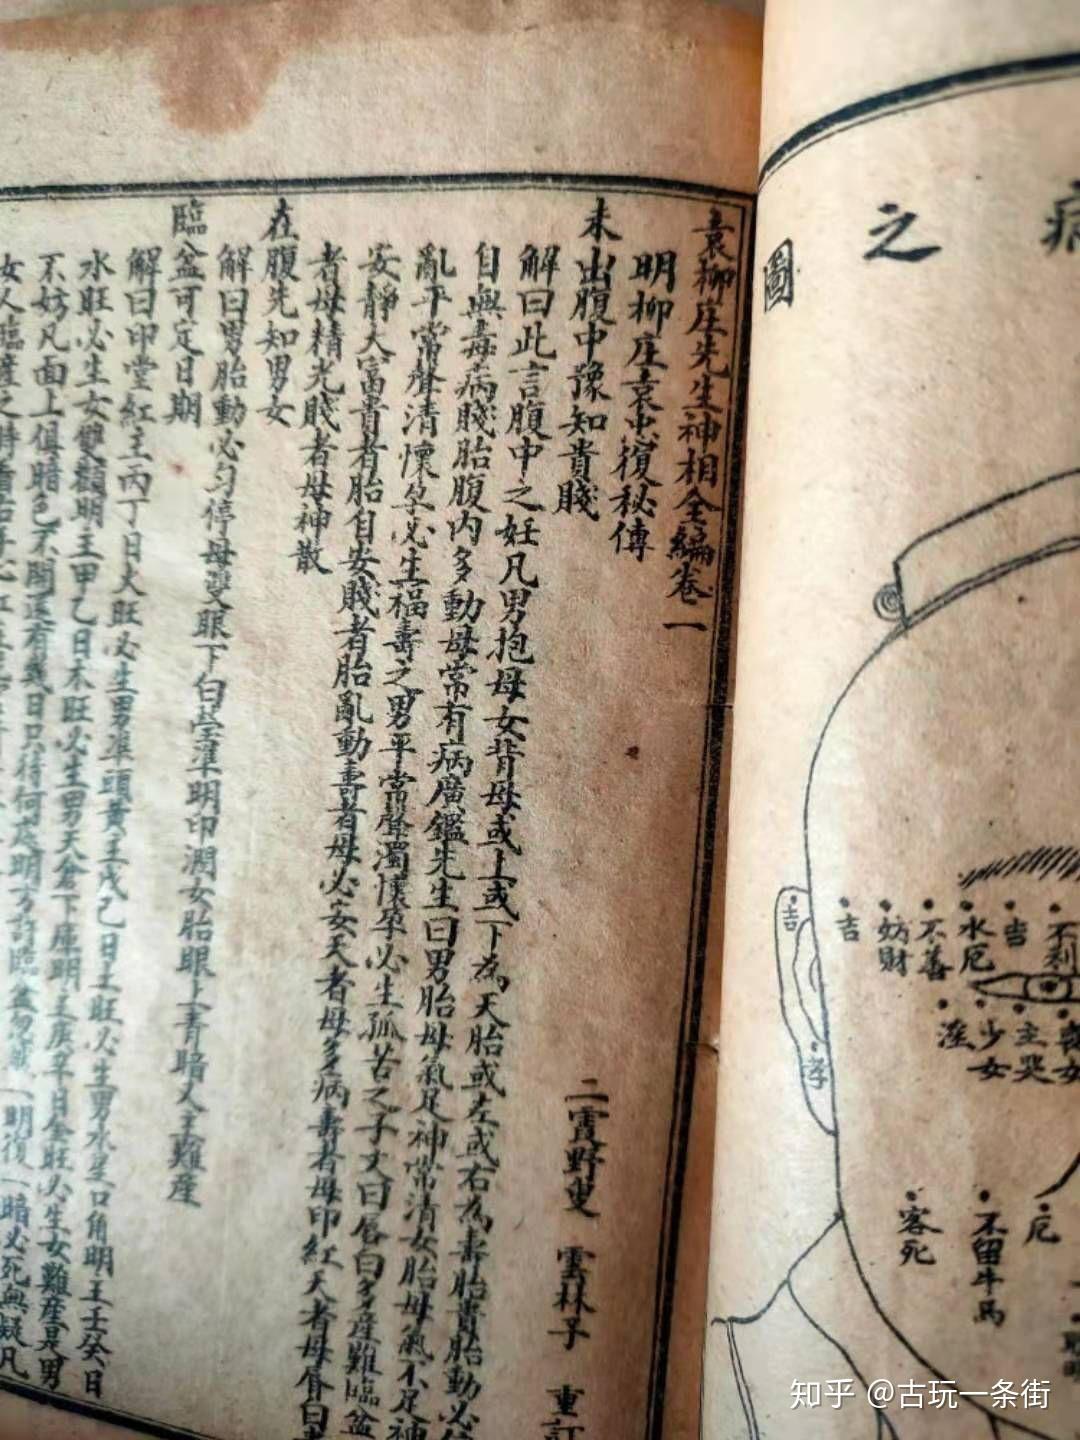 袁柳庄先生神相全編卷一
明柳庄袁忠徹秘傳
二霞野叟 雲林子 重訂
未出腹中豫知貴賤
解曰此言腹中之妊凡男抱母女背母或上或下為夭胎或左或右為壽胎貴胎動必
自無毒病賤胎腹內多動母常有病廣鑑先生曰男胎母氣足神常清女胎母氣不足神
亂平常聲清懷孕必生福壽之男平常聲濁懷孕必生孤苦之子又曰唇白多產難臨盆
安靜大富貴者胎自安賤者胎亂動壽者母必安夭者母多病壽者母印紅夭者母唇白
者母精光賤者母神散
在腹先知男女
解曰男胎動必勻停母雙眼下白瑩準明印潤女胎眼上青暗人主難産
臨盆可定日期
解曰印堂紅主丙丁日火旺必生男準頭黄主戊己日土旺必生男水星口角明主壬癸日
水旺必生女雙顴明主甲乙日木旺必生男天倉下庫明主庚辛日金旺必生女難產是男
不妨凡面上俱暗色不開還有幾日只待何處明方許臨盆勿藏一明復一暗必死無疑凡
女人臨產之時看
之
圖
吉
妨財
不善
水厄
吉
不利
吉
孝
淫
少女
主哭
客死
不留牛馬
厄
聰明
知乎 @古玩一条街